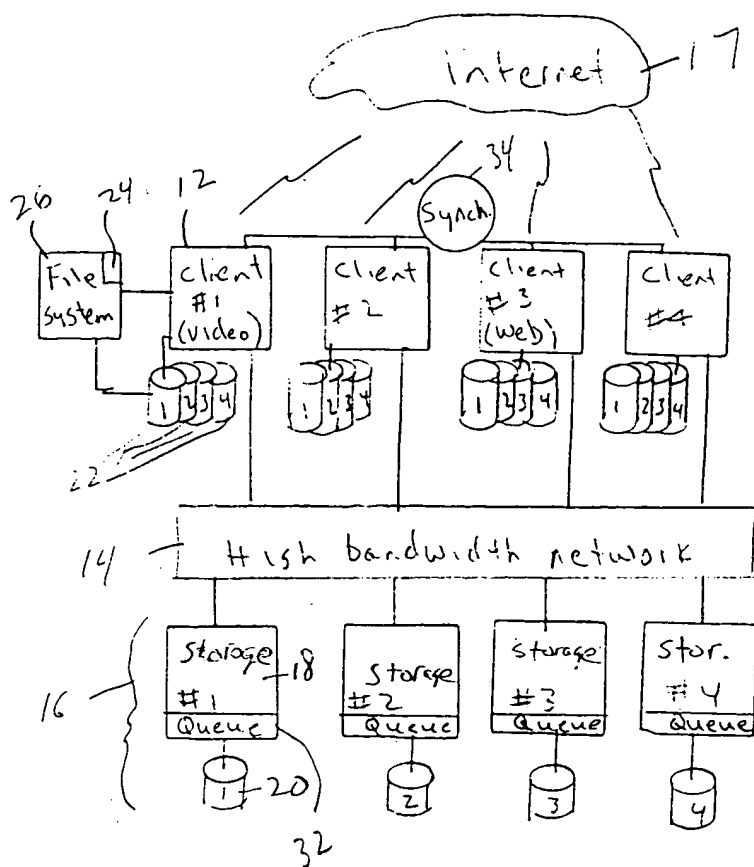 internet
17
34
Synch.
26
24
12
File
system
Client
#1
(Video)
Client
#2
Client
#3
(Web)
Client
#4
1 2 3 4
1 2 3 4
1 2 3 4
1 2 3 4
22
14
High bandwidth network
16
Storage
#1
Queue
18
Storage
#2
Queue
Storage
#3
Queue
Stor.
#4
Queue
1
20
2
3
4
32